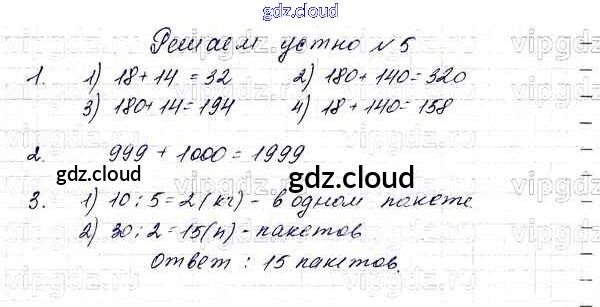 gdz.cloud
Решаем устно №5
1. 1) 18 + 14 = 32 2) 180 + 140 = 320
3) 180 + 14 = 194 4) 18 + 140 = 158
2. 999 + 1000 = 1999
gdz.cloud gdz.cloud
3. 1) 10 : 5 = 2 (кг) - в одном пакете
2) 30 : 2 = 15 (п) - пакетов
gdz.cloud
Ответ : 15 пакетов.